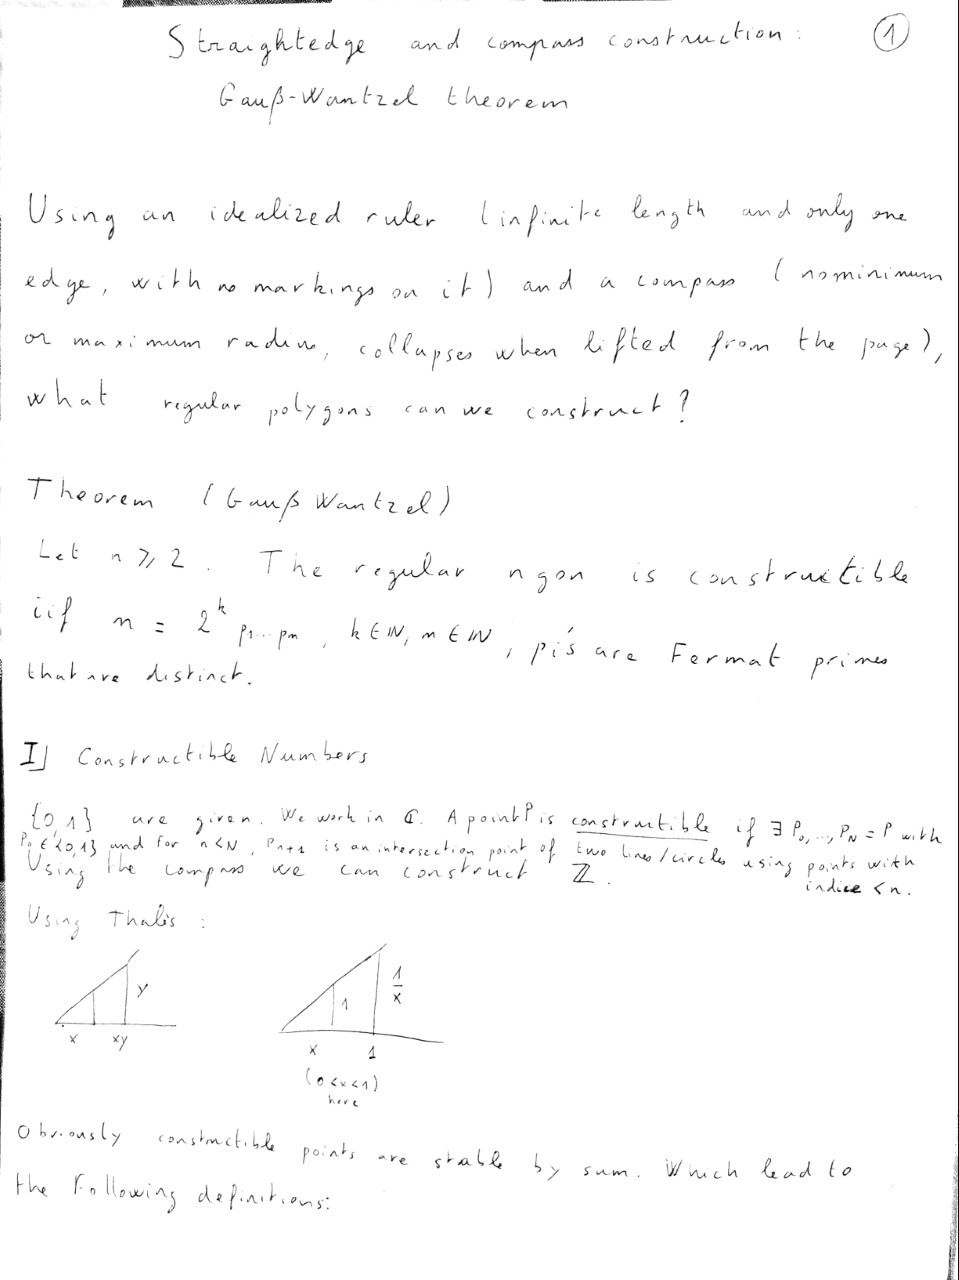 Straightedge and compass construction: ①
Gauß-Wantzel theorem
Using an idealized ruler (infinite length and only one
edge, with no markings on it) and a compass (no minimum
or maximum radius, collapses when lifted from the page),
what regular polygons can we construct?
Theorem (Gauß Wantzel)
Let n ⩾ 2. The regular n gon is constructible
iif n = 2^k p₁...pₘ, k ∈ ℕ, m ∈ ℕ, pᵢ's are Fermat primes
that are distinct.
I] Constructible Numbers
{0,1} are given. We work in ℂ. A point P is constructible if ∃ P₀,...,P_N = P with
P₀ ∈ {0,1} and for n<N, Pₙ₊₁ is an intersection point of two lines/circles using points with
indice <n.
Using the compass we can construct ℤ.
Using Thalès :
y
x xy
1 1/x
x 1
(0<x<1)
here
Obviously constructible points are stable by sum. Which lead to
the following definitions: